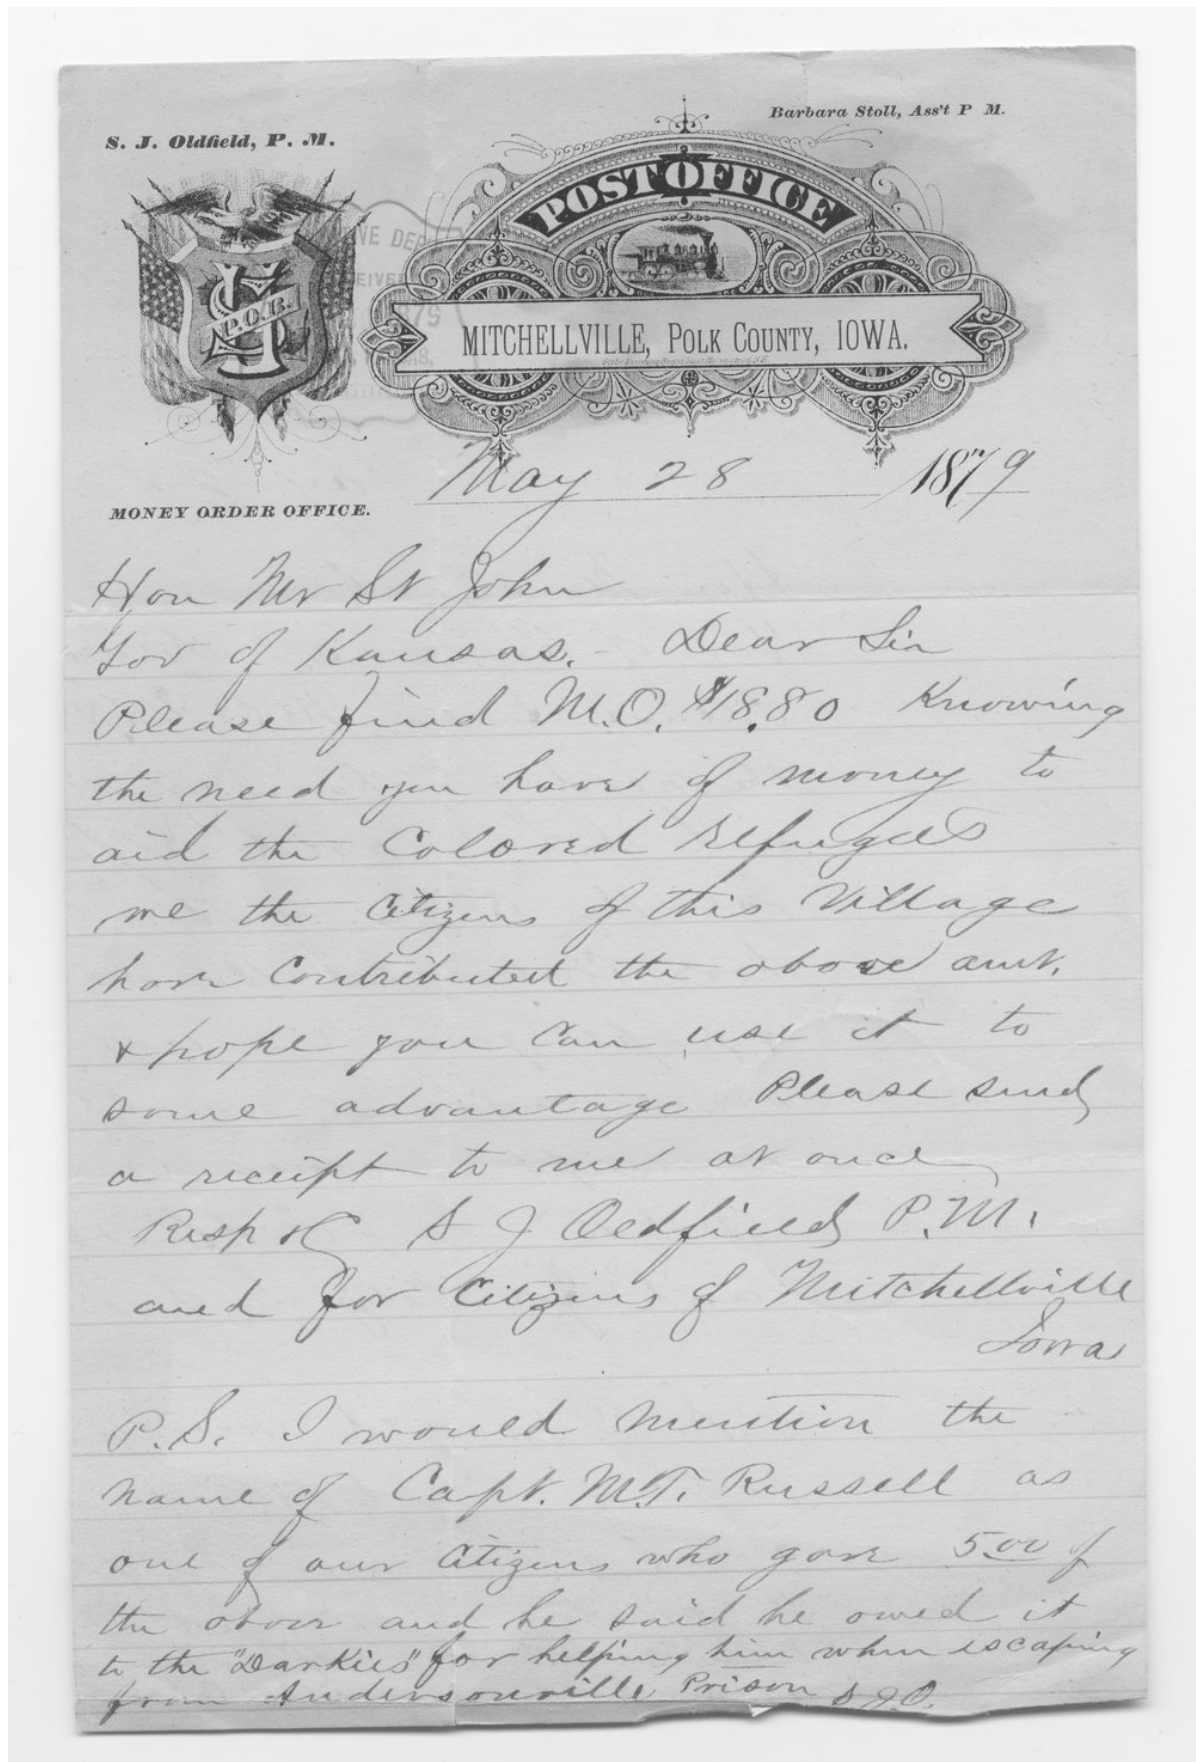 Barbara Stoll, Ass't P M.
S. J. Oldfield, P. M.
POST OFFICE
P.O.B.
MITCHELLVILLE, POLK COUNTY, IOWA.
May 28 1879
MONEY ORDER OFFICE.
Hon Mr St John
Gov of Kansas. - Dear Sir
Please find M.O. $18.80 Knowing
the need you have of money to
aid the Colored refugees
we the Citizens of this Village
have Contributed the above amt.
& hope you can use it to
some advantage Please send
a receipt to me at once
Resply S J Oldfield P.M.
and for Citizens of Mitchellville
Iowa
P.S. I would mention the
name of Capt. M.T. Russell as
one of our Citizens who gave 5.00 of
the above and he said he owed it
to the "Darkies" for helping him when escaping
from Andersonville Prison S J O.